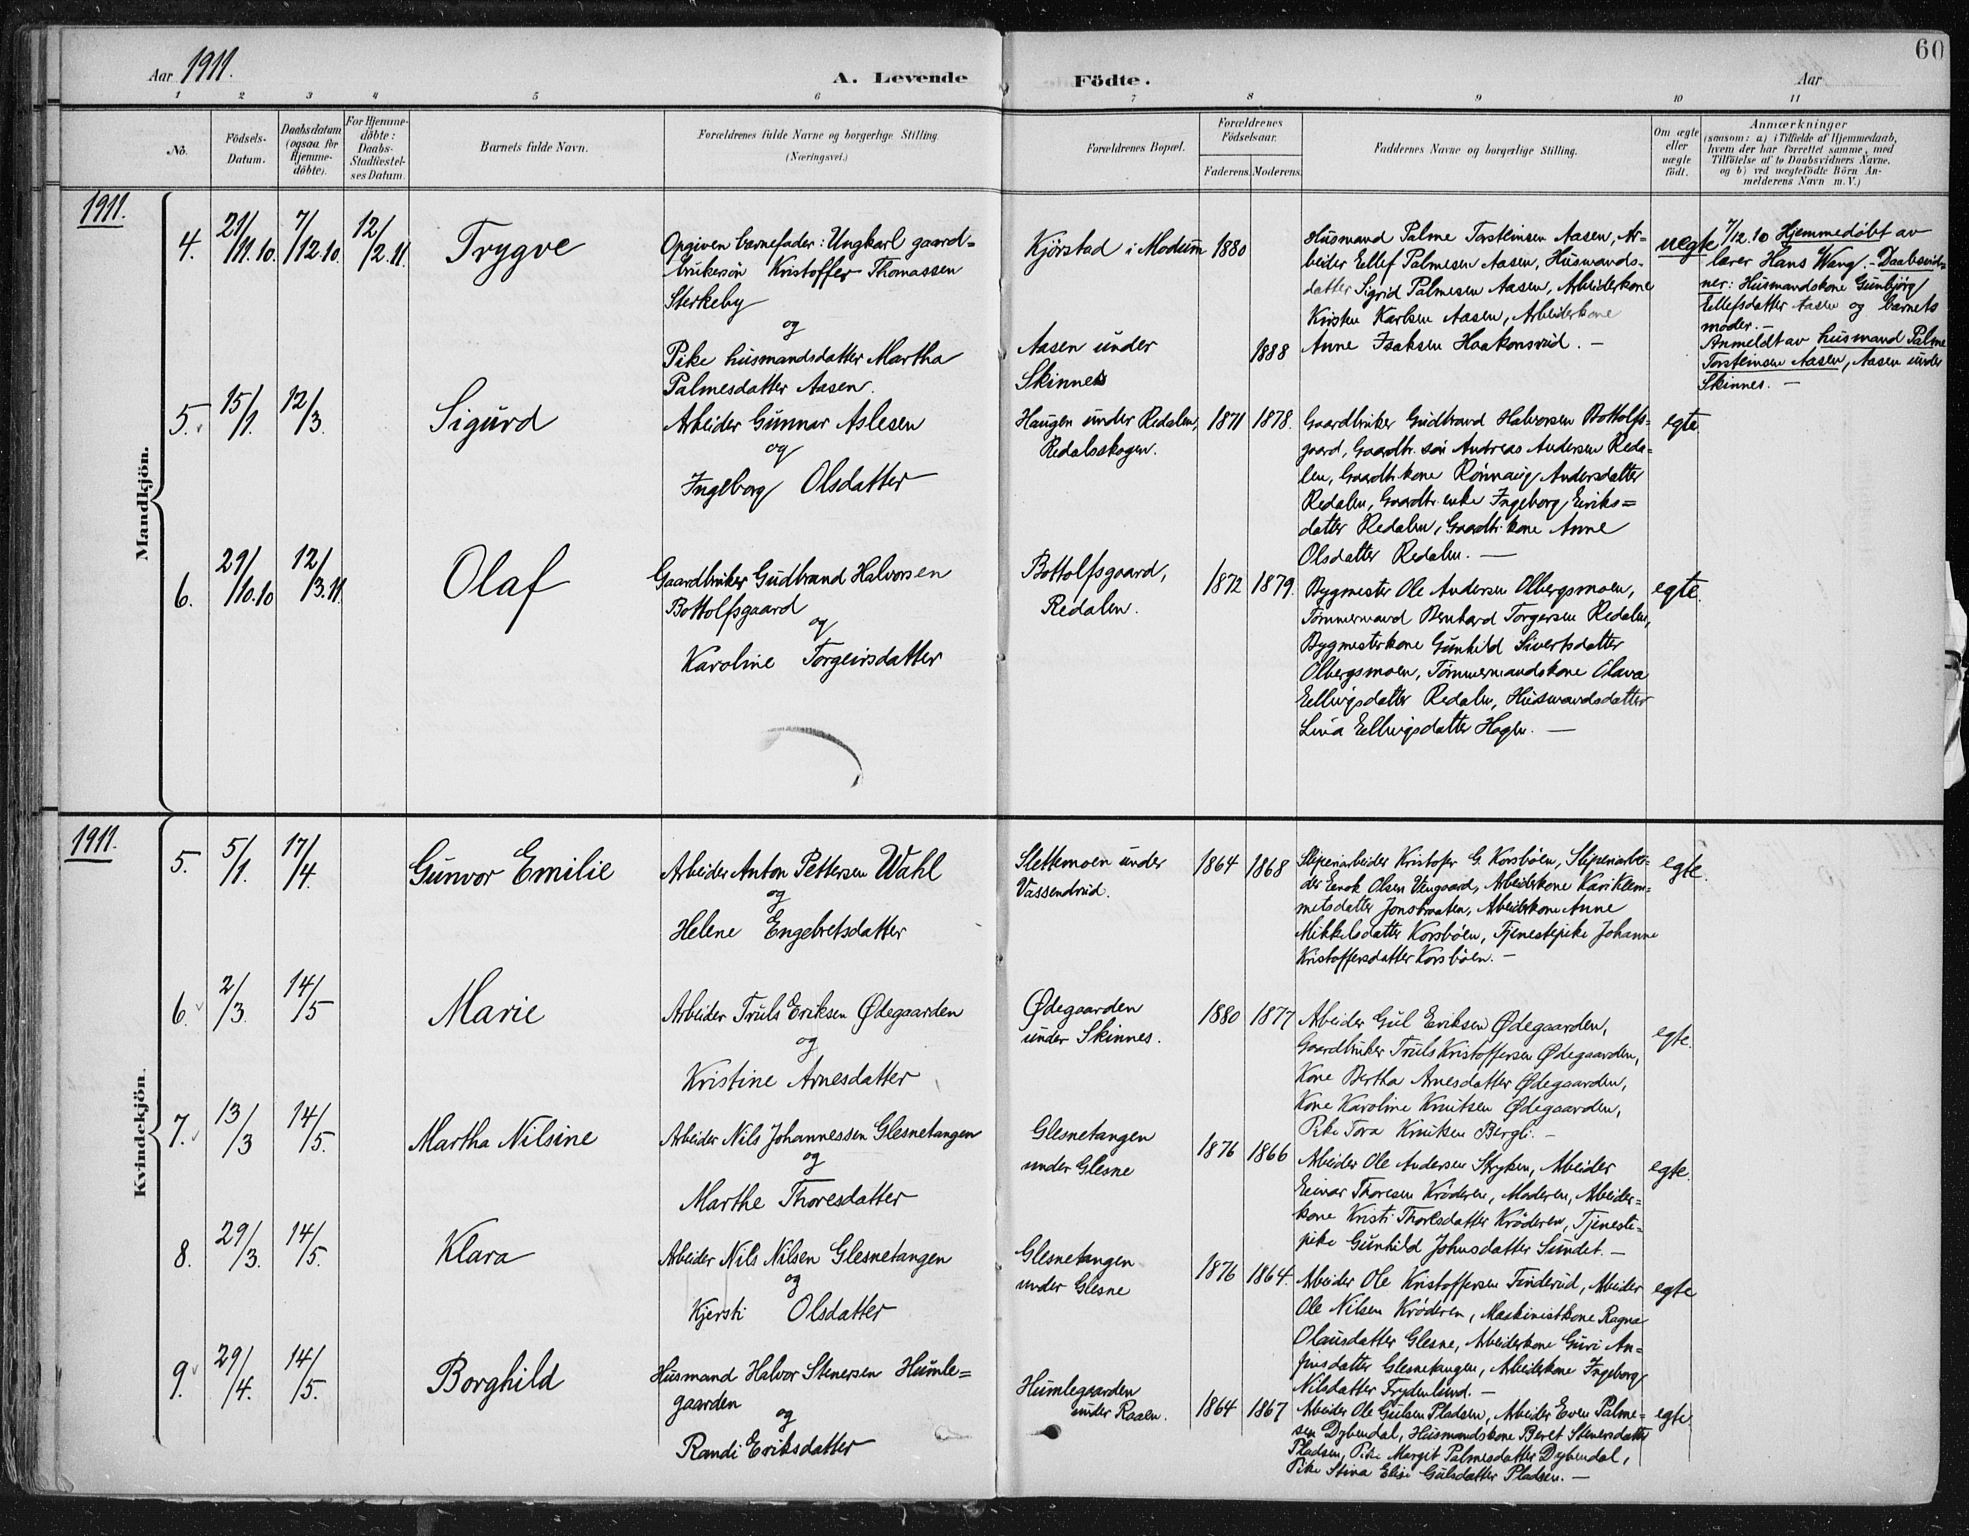 60
Aar 1911.
A. Levende Födte.
Aar
1 2 3 4 5 6 7 8 9 10 11
No.
Födsels-
Datum.
Daabsdatum
(ogsaa for
Hjemme-
döbte).
For Hjemme-
döbte:
Daabs-
Stadfæstel-
ses Datum.
Barnets fulde Navn.
Forældrenes fulde Navne og borgerlige Stilling
(Næringsvei.)
Forældrenes Bopæl.
Forældrenes
Födselsaar.
Faderens.
Moderens.
Faddernes Navne og borgerlige Stilling.
Om ægte
eller
uægte
födt.
Anmærkninger
(saasom: a) i Tilfælde af Hjemmedaab,
hvem der har forrettet samme, med
Tilföielse af to Daabsvidners Navne.
og b) ved uægtefödte Börn An-
melderens Navn m. V.)
Mandkjön.
1911.
4.
21/11.10.
7/12.10.
12/2.11.
Trygve
Opgiven barnefader: Ungkarl gaard-
brukersøn Kristoffer Thomassen
Sterkeby
og
Pike husmandsdatter Martha
Palmesdatter Aasen.
Kjörstad i Modum
Aasen under
Skinnes
1880
1888
Husmand Palme Torsteinsen Aasen, Ar-
beider Ellef Palmesen Aasen, Husmands-
datter Sigrid Palmesen Aasen, Arbeiderkone
Kirsten Karlsen Aasen, Arbeiderkone
Anne Isaksen Haakonsrud. —
uegte
7/12.10 Hjemmedøbt av
lærer Hans Wang. - Daabsvid=
ner: Husmandskone Gunbjörg
Ellefsdatter Aasen og barnets
moder. —
Anmeldt av husmand Palme
Torsteinsen Aasen, Aasen under
Skinnes. —
5.
15/1.
12/3.
Sigurd
Arbeider Gunnar Aslesen
og
Ingeborg Olsdatter
Haugen under Redalen,
Redalsskogen.
1871
1878.
Gaardbruker Gudbrand Halvorsen Bottolfs-
gaard, Gaardbr. søn Andreas Andersen Reda-
len, Gaardbr. kone Rønnaug Andersdatter
Redalen, Gaardbr. enke Ingeborg Eeriks=
datter Redalen, Gaardbr. kone Anne
Olsdatter Redalen. —
egte.
6.
29/10.10
12/3.11.
Olaf
Gaardbruker Gudbrand Halvorsen
Bottolfsgaard
og
Karoline Torgeirsdatter
Bottolfsgaard,
Redalen.
1872
1879.
Bygmester Ole Andersen Olbergsmoen,
Tømmermand Bernhard Torgersen Redalen,
Bygmesterkone Gunhild Sivertsdatter
Olbergsmoen, Tømmermandskone Olava
Ellingsdatter Redalen, Husmandsdatter
Lina Ellingsdatter Hagen. —
egte.
Kvindekjön.
1911.
5.
5/1.
17/4.
Gunvor Emilie
Arbeider Anton Pettersen Wahl
og
Helene Engebretsdatter
Slettemoen under
Vassendrud.
1864
1868
Sliperiarbeider Kristofer G. Korsbøen, Sliperiarbei-
der Enok Olsen Vengaard, Arbeiderkone Kari Klem=
metsdatter Jonsbraaten, Arbeiderkone Anne
Mikkelsdatter Korsbøen, Tjenestepike Johanne
Kristoffersdatter Korsbøen. —
egte.
6.
2/3.
14/5
Marie
Arbeider Truls Eriksen Ødegaarden
og
Kristine Arnesdatter
Ødegaarden
under Skinnes.
1880
1877
Arbeider Gul Eriksen Ødegaarden,
Gaardbruker Truls Kristoffersen Ødegaarden,
Kone Bertha Arnesdatter Ødegaarden,
Kone Karoline Knutsen Ødegaarden,
Pike Tora Knutsen Bergli. —
egte.
7.
13/3
14/5.
Martha Nilsine
Arbeider Nils Johannessen Glesnetangen
og
Marthe Thoresdatter
Glesnetangen
under Glesne
1876
1866
Arbeider Ole Andersen Stryken, Arbeider
Eeinar Thoresen Krøderen, Moderen, Arbeider-
kone Kristi Thoresdatter Krøderen, Tjeneste-
pike Gunhild Johnsdatter Sundet. —
egte.
8.
29/3.
14/5.
Klara
Arbeider Nils Nilsen Glesnetangen
og
Kjersti Olsdatter
Glesnetangen
under Glesne
1876
1864.
Arbeider Ole Kristoffersen Finderud, Arbeider
Ole Nilsen Krøderen, Maskinistkone Ragna
Olausdatter Glesne, Arbeiderkone Guri An=
finsdatter Glesnetangen, Arbeiderkone Ingeborg
Nilsdatter Frydenlund. —
egte
9.
29/4.
14/5.
Borghild
Husmand Halvor Stenersen Humle=
gaarden
og
Randi Eriksdatter
Humlegaarden
under Raaen.
1864
1867
Arbeider Ole Gulsen Pladsen, Arbeider Even Palme=
sen Dybendal, Husmandskone Beret Stenersdatter
Pladsen, Pike Margit Palmesdatter Dybendal,
Pike Stina Elise Gulsdatter Pladsen. —
egte.